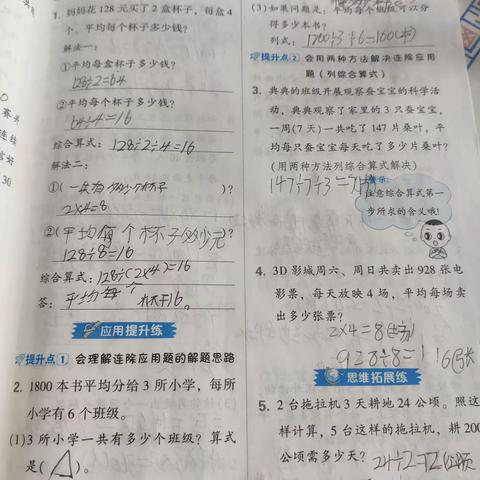 1. 妈妈花 128 元买了 2 盒杯子，每盒 4
个。平均每个杯子多少钱？
解法一：
①平均每盒杯子多少钱？
128÷2=64
②平均每个杯子多少钱？
64÷4=16
综合算式：128÷2÷4=16
解法二：
①(一共有多少个杯子)？
2×4=8
②(平均每个杯子多少元？
128÷8=16
综合算式：128÷(2×4)=16
答：平均每个杯16。
应用提升练
提升点1 会理解连除应用题的解题思路
2. 1800 本书平均分给 3 所小学，每所
小学有 6 个班级。
(1)3 所小学一共有多少个班级？算式
是(△)。
(3)如果问题是：平均每个班级可以分
得多少本书？
列式：1800÷3÷6=100(本)
提升点2 会用两种方法解决连除应用
题（列综合算式）
3. 典典的班级开展观察蚕宝宝的科学活
动，典典观察了家里的 3 只蚕宝宝，
一周(7 天)一共吃了 147 片桑叶，平
均每只蚕宝宝每天吃了多少片桑叶？
(用两种方法列综合算式解决)
147÷7÷3=7
提示：
注意综合算式第一
步所求的含义哦！
4. 3D 影城周六、周日共卖出 928 张电
影票，每天放映 4 场，平均每场卖
出多少张票？
2×4=8(场)
928÷8=116
思维拓展练
5. 2 台拖拉机 3 天耕地 24 公顷。照这
样计算，5 台这样的拖拉机，耕 200
公顷需多少天？
24÷2=12(公顷